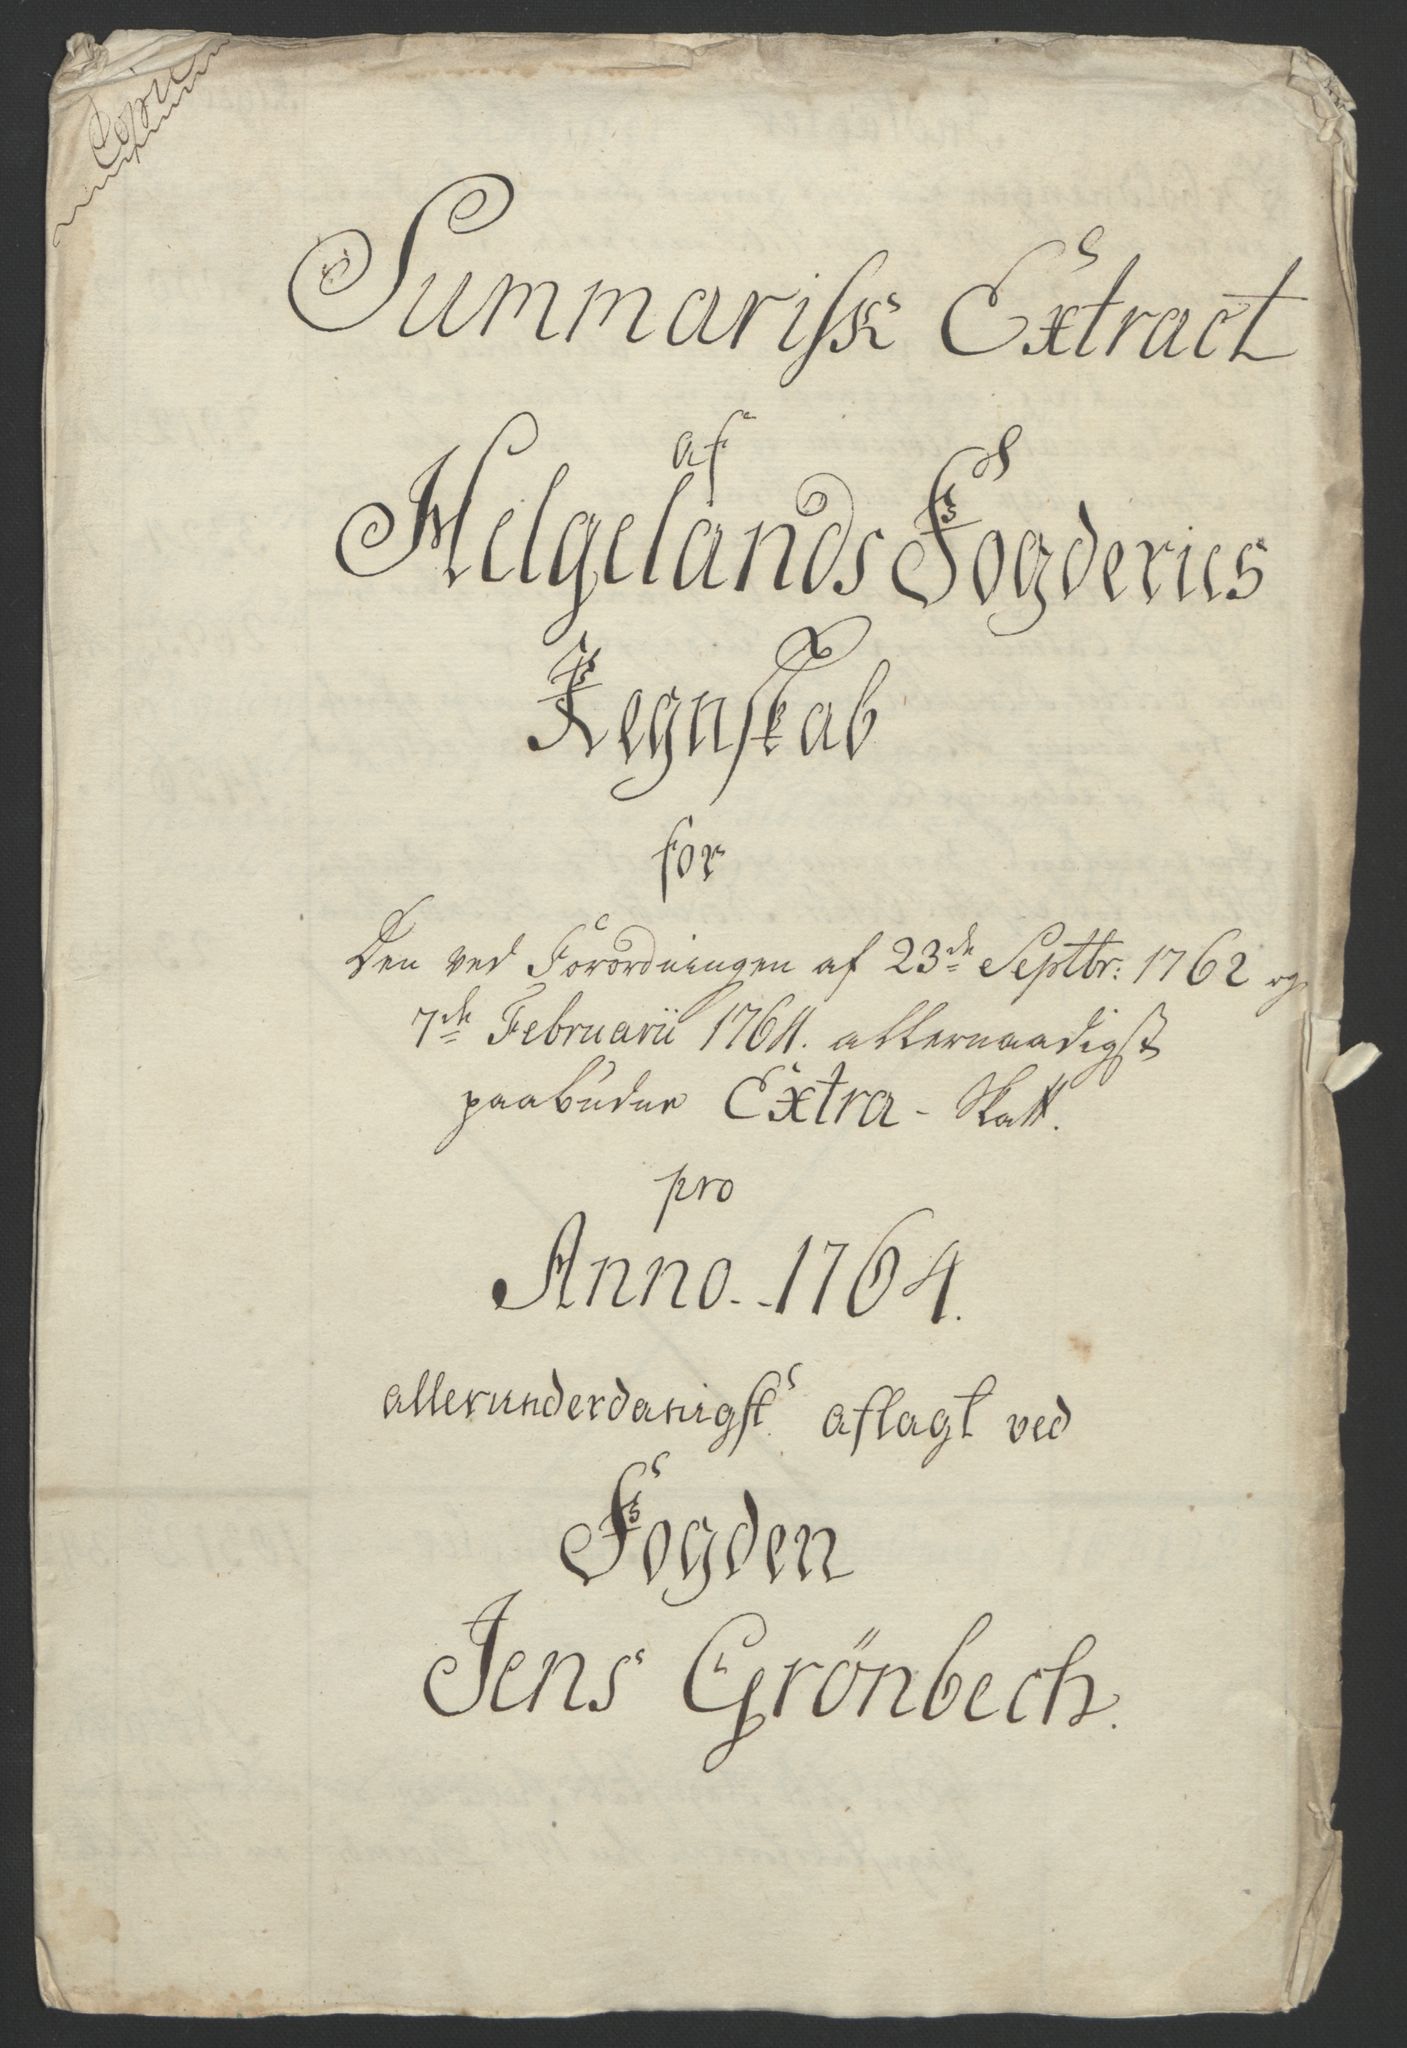 Copie
Summarisk Extract
af
Helgelands Fogderies
Regnskab
for
Den ved Forordningen af 23de Septbr: 1762 og
7de Februarii 1764. allernaadigst
paabudne Extra-Skatt.
pro
Anno.-1764.
allerunderdanigst aflagt ved
Fogden
Jens Grönbech.